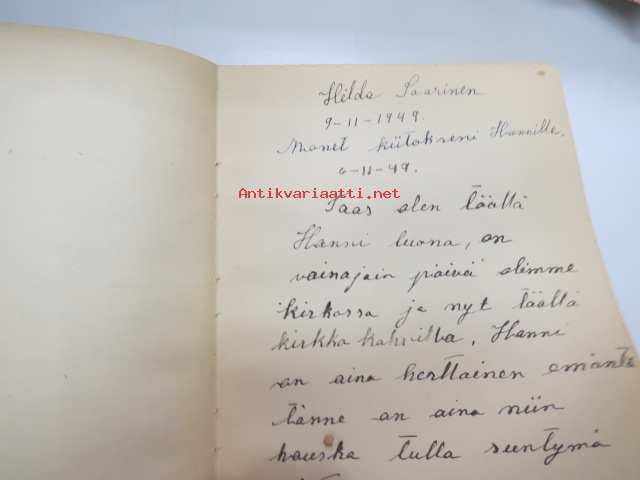 Hilda Saarinen
9-11-1949.
Monet kiitokseni Hannille.
6-11-49.
Antikvariaatti.net
Taas olen täällä
Hanni luona, on
vainajain päivä olimme
kirkossa ja nyt täällä
kirkkokahvilla. Hanni
on aina herttainen emäntä
tänne on aina niin
hauska tulla